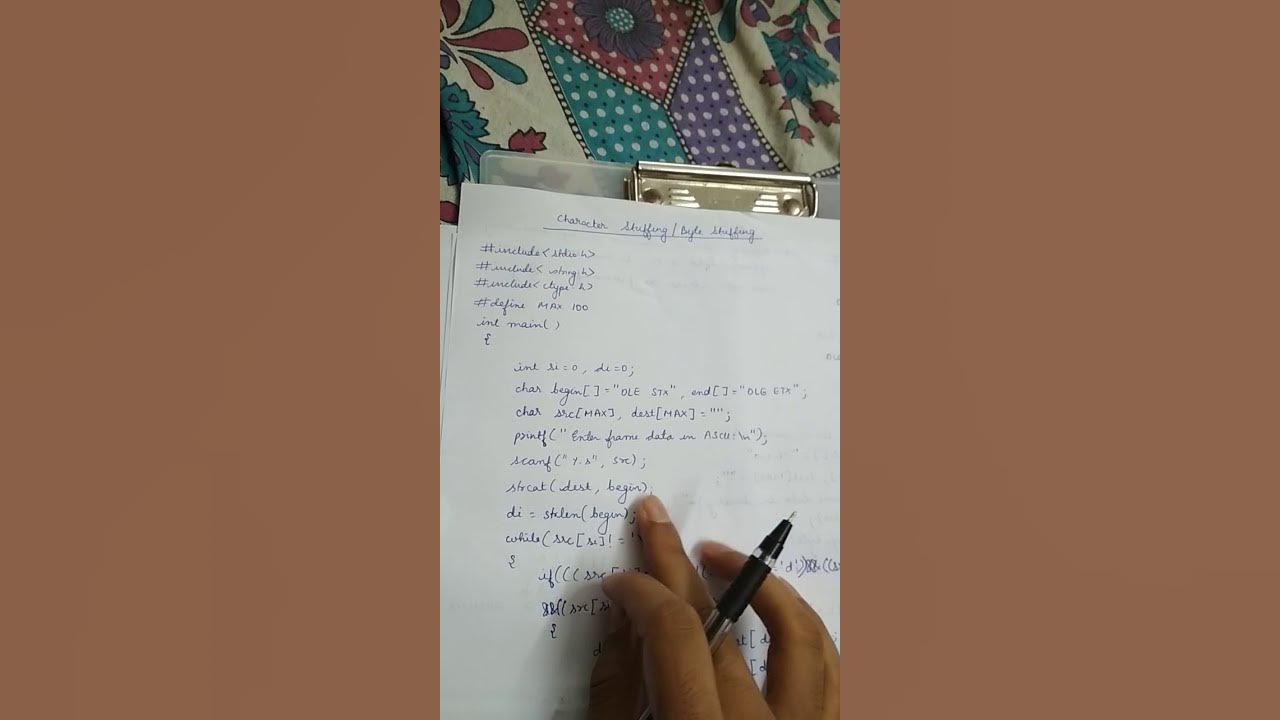 Character Stuffing / Byte Stuffing
#include< stdio.h>
#include< string.h>
#include< ctype.h>
#define MAX 100
int main( )
{
int si=0, di=0;
char begin[ ]="DLE STX", end[ ]="DLE ETX";
char src[MAX], dest[MAX]="";
printf("Enter frame data in ASCII:\n");
scanf("%s", src);
strcat(dest, begin);
di = strlen(begin);
while(src[si]!='
{
if(((src[ 'd')&&((s
&&((src[si
{
d st[d
[d